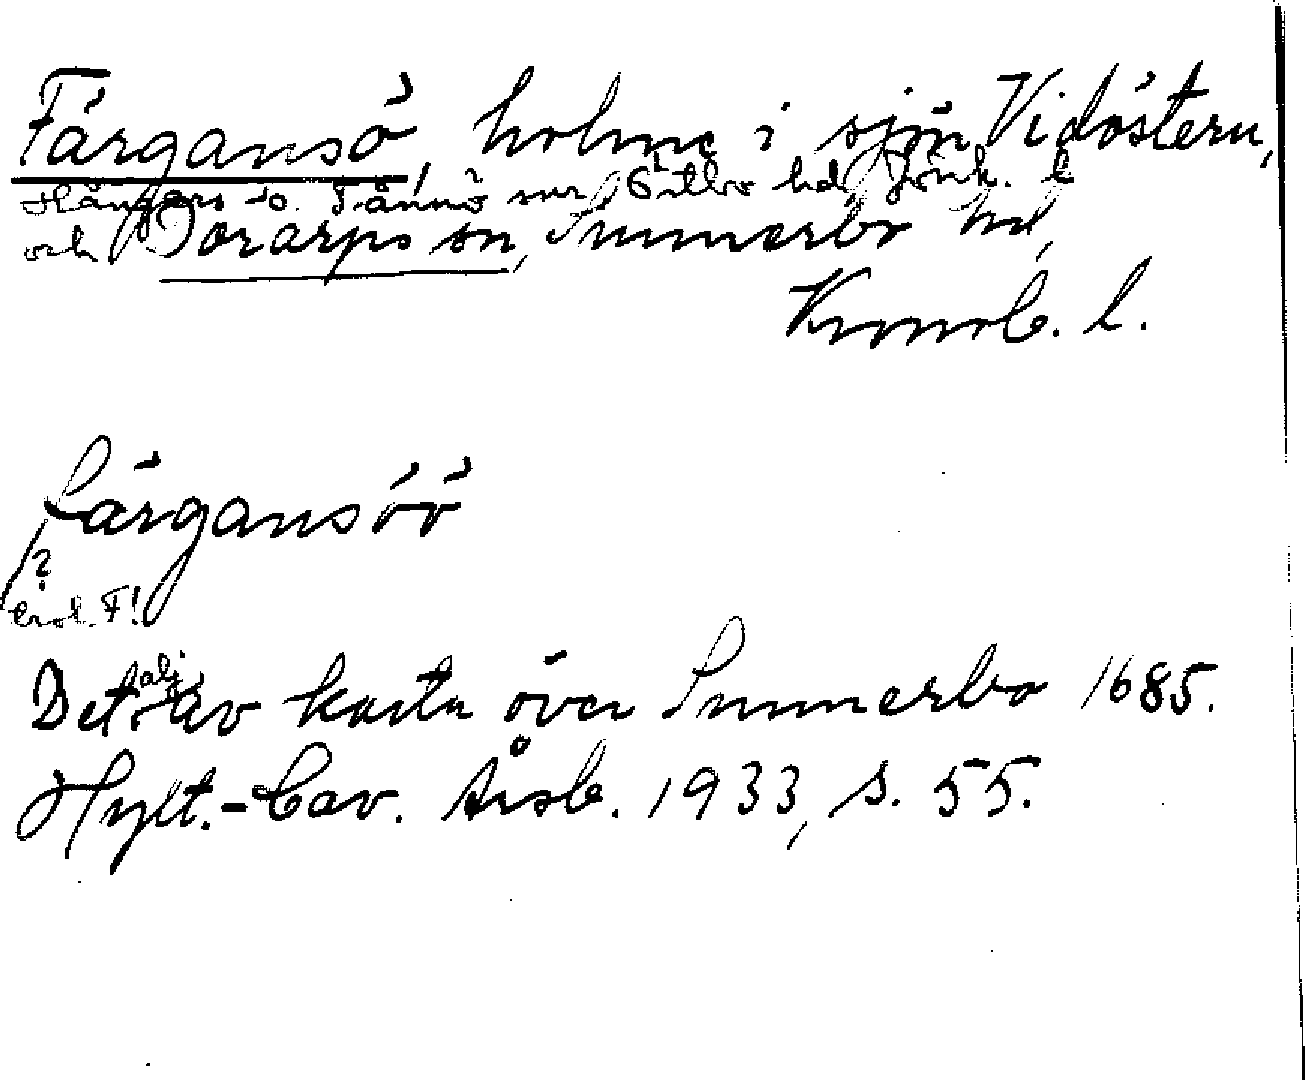 Färgansö, holme i sjön Vidöstern,
Hångers o. Tånnö snr Östbo hd, Jönk. l
och Dörarps sn, Sunnerbo hd,
Kronob. l.
färgansöö
?
trol. F!
Detalj av karta över Sunnerbo 1685.
Hylt.-Cav. Årsb. 1933, s. 55.